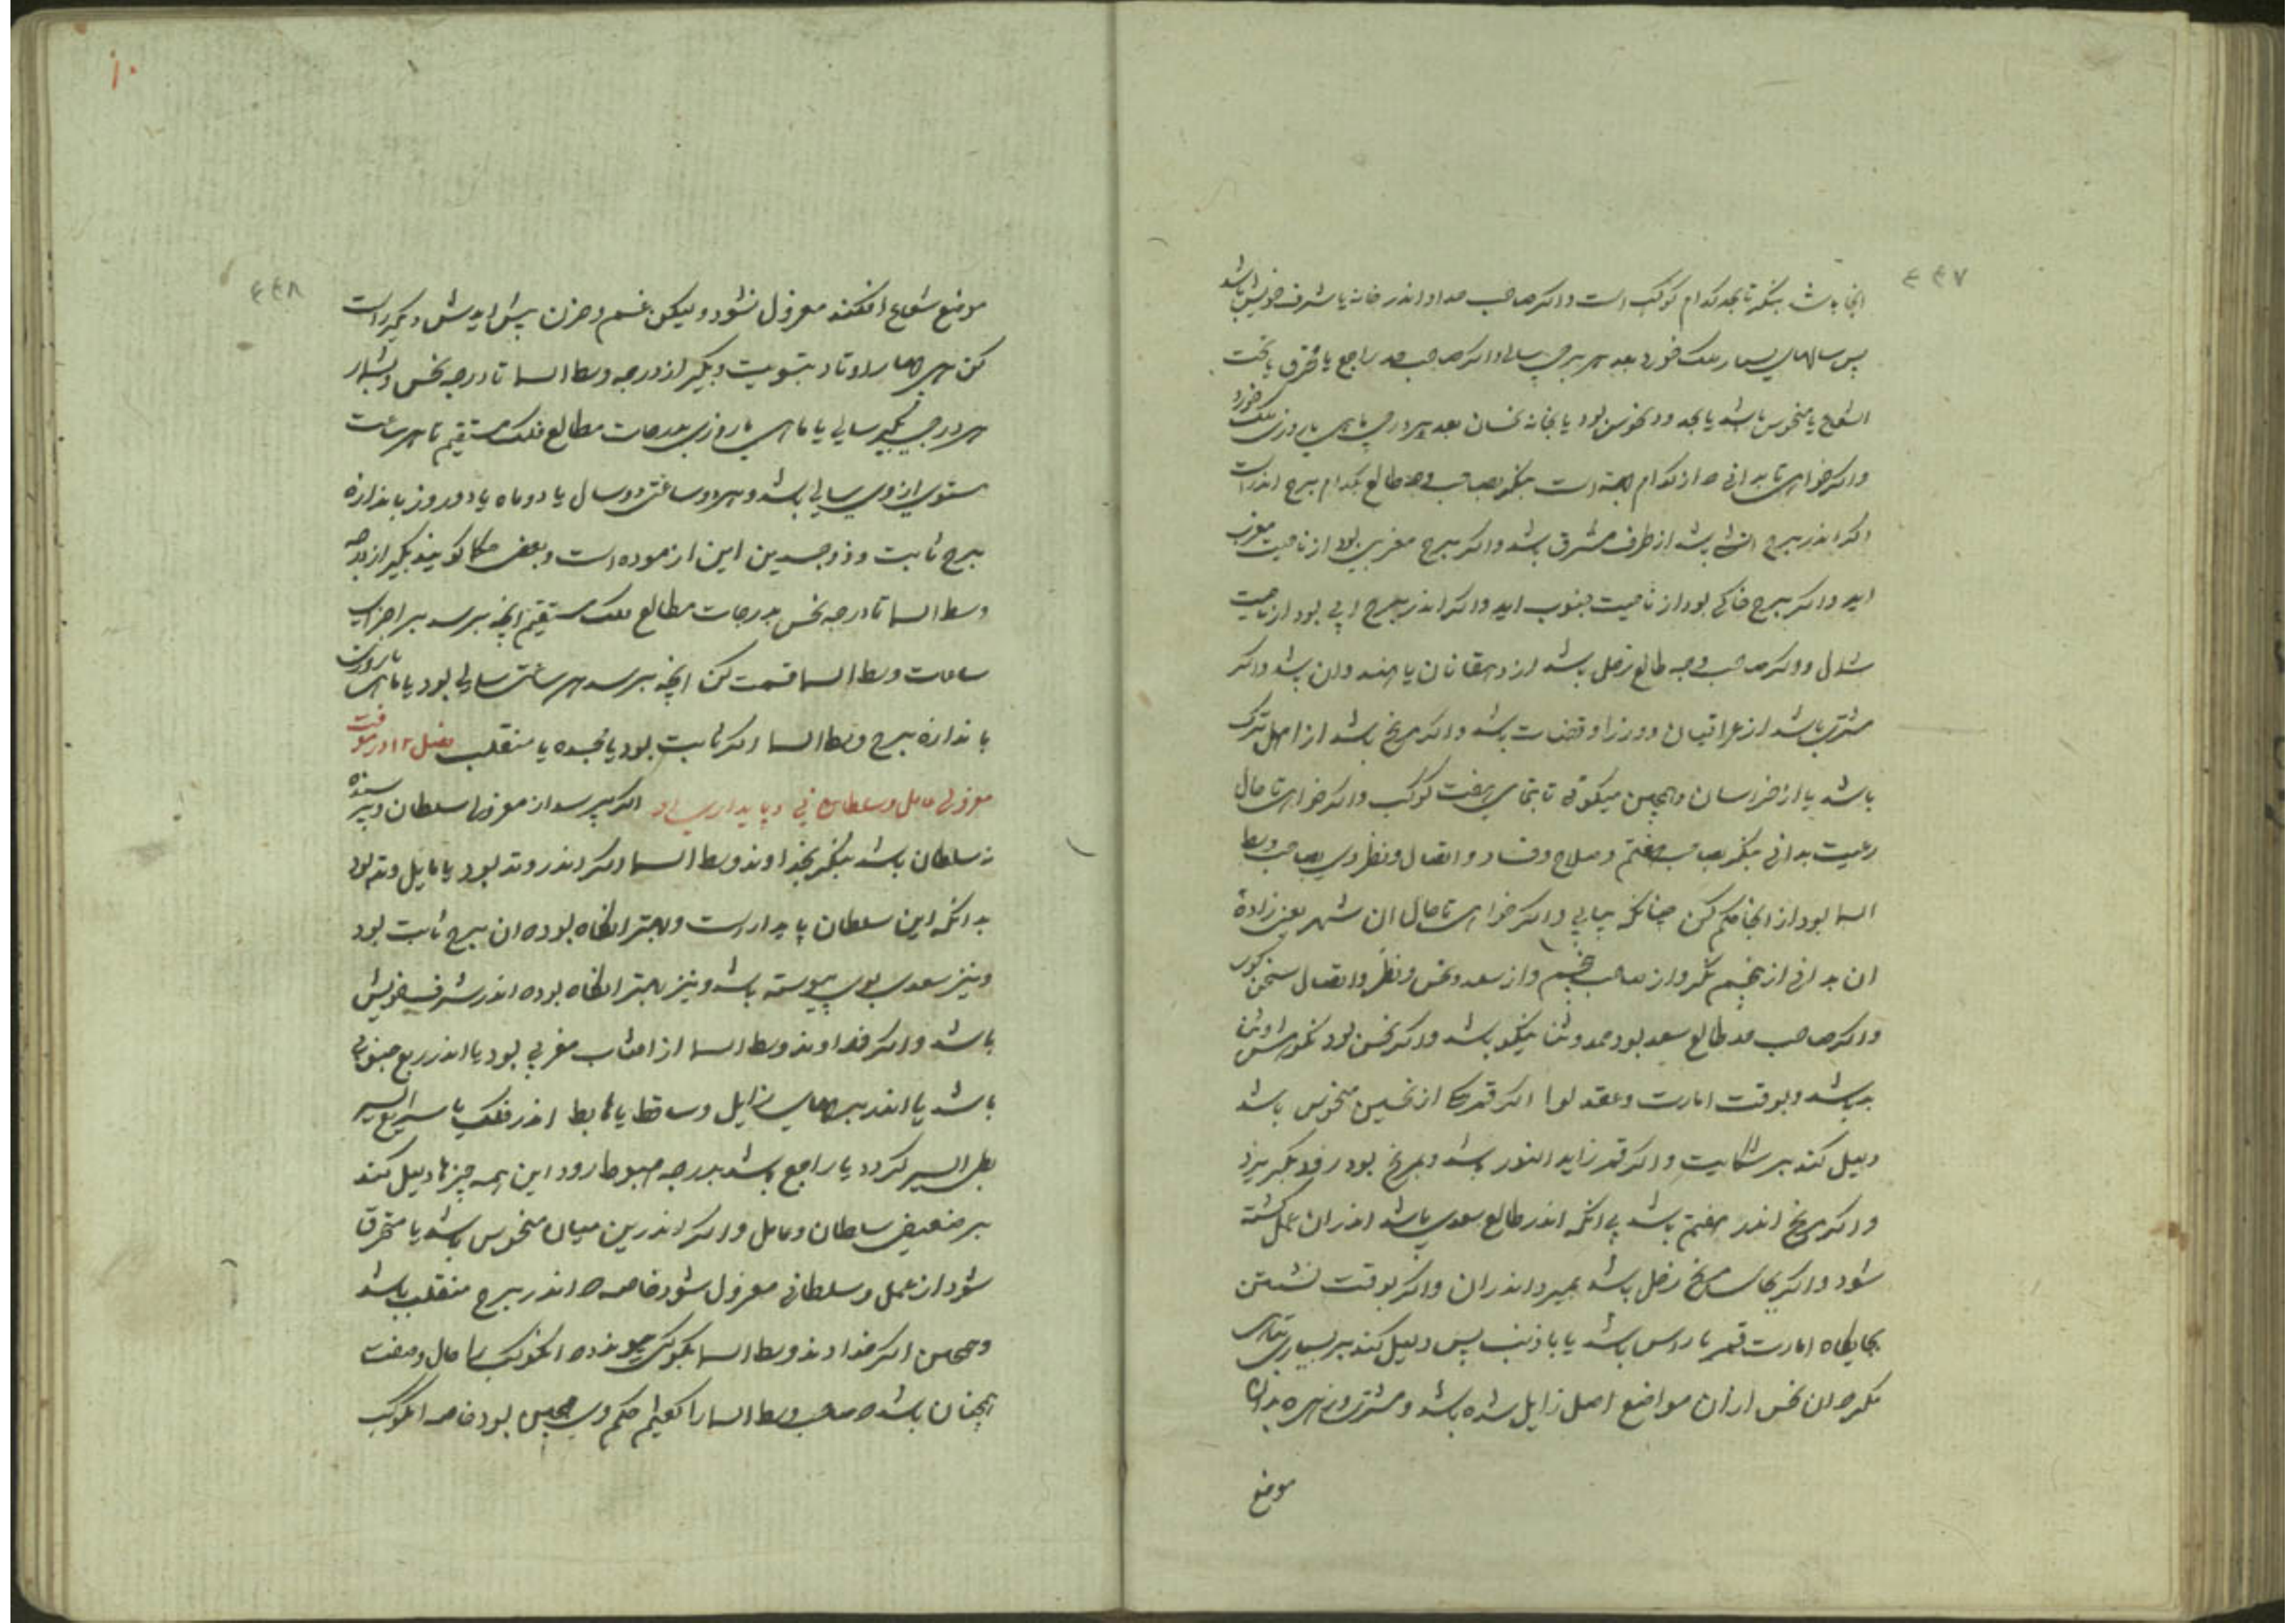 ۴۴۷
انجا باشد بنگر تا بحد کدام کوکب است واکر صاحب حد او اندر خانه یا شرف خویش باشد
پس سالهای بسیار ملک خورد بعد هر برجی سالی واکر صاحب حد راجع یا محترق یا تحت
الشعاع یا منحوس باشد یا بحد ود نحوس بود یا بخانه نحسان بعد هر درجی ماهی یا روزی ملک خورد
واکر خواهی تا بدانی که از کدام جهة است بنکر بصاحب وجه طالع بکدام برج اندر است
اکر اندر برج اتشی باشد از طرف مشرق باشد واکر برج مغربی بود از ناحیت مغرب
اید واکر برج خاکی بود از ناحیت جنوب اید واکر اندر برج ابی بود از ناحیت
شمال وواکر صاحب وجه طالع زحل باشد از دهقانان یا هندوان باشد واکر
مشتری باشد از عراقیان ووزرا وقضات باشد واکر مریخ باشد از اهل ترک
باشد یا از خراسان وهمچنین میکوئی تا بتمامی هفت کوکب واکر خواهی تا حال
رعیت بدانی بنکر بصاحب هفتم وصلاح وفساد واتصال ونظر وی بصاحب وسط
السما بود از انجا حکم کن چنانکه بیابی واکر خواهی تا حال ان شهر یعنی زادة
ان بدانی از پنجم نکر واز صاحب پنجم واز سعد ونحس ونظر واتصال سخن کوی
واکر صاحب حد طالع سعد بود حمد وثنا نیکو باشد واکر نحس بود نکوهش وثنا
بد باشد وبوقت امارت وعقد لوا اکر قمر از نحسین منحوس باشد
دلیل کند بر شکایت واکر قمر زاید النور باشد وبمریخ بود رفد بکریزد
واکر مریخ اندر هفتم باشد بی انکه اندر طالع سعدی باشد اندران عمل کشته
شود واکر بجای مریخ زحل باشد بمیرد اندران واکر بوقت نشستن
بجایکاه امارت قمر با راس باشد یا با ذنب پس دلیل کند بر بسیاری بیماری
مکر که ان نحس از ان مواضع اصل زایل شده باشد ومشتری وزهره بدان
موضع
۴۴۸
موضع شعاع افکنند معزول نشود ولیکن غم وحزن پیش ایدش دیکر راست
کن برجها را اوتاد بتسویت وبکیر از درجه وسط السما تا درجه نحس وبشمار
هر درجی بکیر سالی یا ماهی یا روزی بدرجات مطالع فلک مستقیم تا هر ساعت
مستوی از وی سالی باشد وهر دو ساعتی دو سال یا دو ماه یا دو روز باندازه
برج ثابت وذو جسدین این ازموده است وبعضی حکما کویند بکیر از درجه
وسط السما تا درجه نحس بدرجات مطالع فلک مستقیم انچه برسد بر اجزای
ساعات وسط السما قسمت کن انچه برسد هر ساعتی سالی بود یا ماهی یا روزی
باندازه برج وسط السما اکر ثابت بود یا مجسده یا منقلب فصل ۱۲ در معرفت
معزولی عامل وسلطانی وپایداری او اکر بپرسد از معزولی سلطان وپرسنده
نه سلطان باشد بنکر بخداوند وسط السما واکر اندر وتد بود یا مایل وتد بود
بدانکه این سلطان پایدار است وبهتر انکاه بود که ان برج ثابت بود
ونیز سعدی بوی پیوسته باشد ونیز بهتر انکاه بود که اندر شرف خویش
باشد واکر خداوند وسط السما از افتاب مغربی بود یا اندر ربع جنوبی
باشد یا اندر برجهای زایل وساقط یا هابط اندر فلک یا سریع السیر
بطی السیر کردد یا راجع باشد بدرجه هبوط رود این همه چیزها دلیل کند
بر ضعیفی سلطان وعامل واکر اندرین میان منحوس باشد یا محترق
شود از عمل وسلطانی معزول شود خاصه که اندر برج منقلب باشد
وهمچنین اکر خداوند وسط السما بکوکبی پیوندد که انکوکب را حال وصفت
همچنان باشد که صاحب وسط السما را کفتیم حکم وی همچنین بود خاصه انکوکب